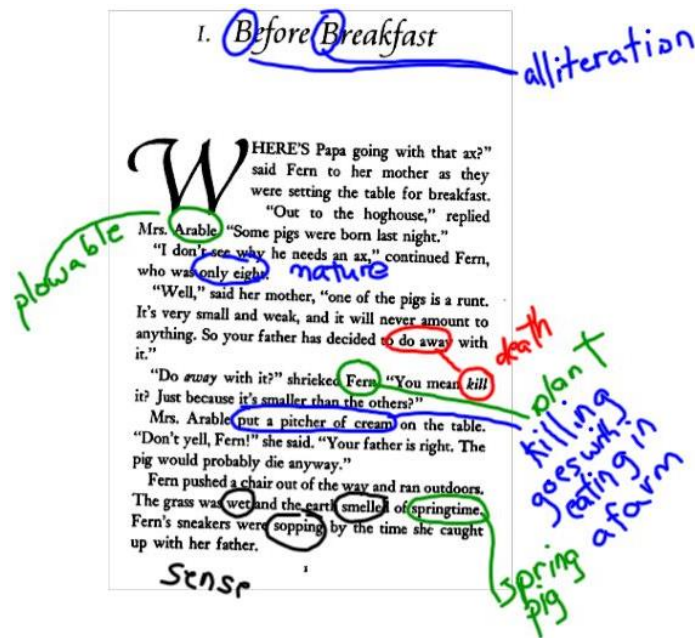 I. Before Breakfast
alliteration
WHERE'S Papa going with that ax?"
said Fern to her mother as they
were setting the table for breakfast.
"Out to the hoghouse," replied
Mrs. Arable. "Some pigs were born last night."
plowable
"I don't see why he needs an ax," continued Fern,
who was only eight.
mature
"Well," said her mother, "one of the pigs is a runt.
It's very small and weak, and it will never amount to
anything. So your father has decided to do away with
it."
death
"Do away with it?" shrieked Fern. "You mean kill
it? Just because it's smaller than the others?"
plant
Mrs. Arable put a pitcher of cream on the table.
"Don't yell, Fern!" she said. "Your father is right. The
pig would probably die anyway."
killing
goes with
eating in
a farm
Fern pushed a chair out of the way and ran outdoors.
The grass was wet and the earth smelled of springtime.
Fern's sneakers were sopping by the time she caught
up with her father.
sense
spring
pig
1